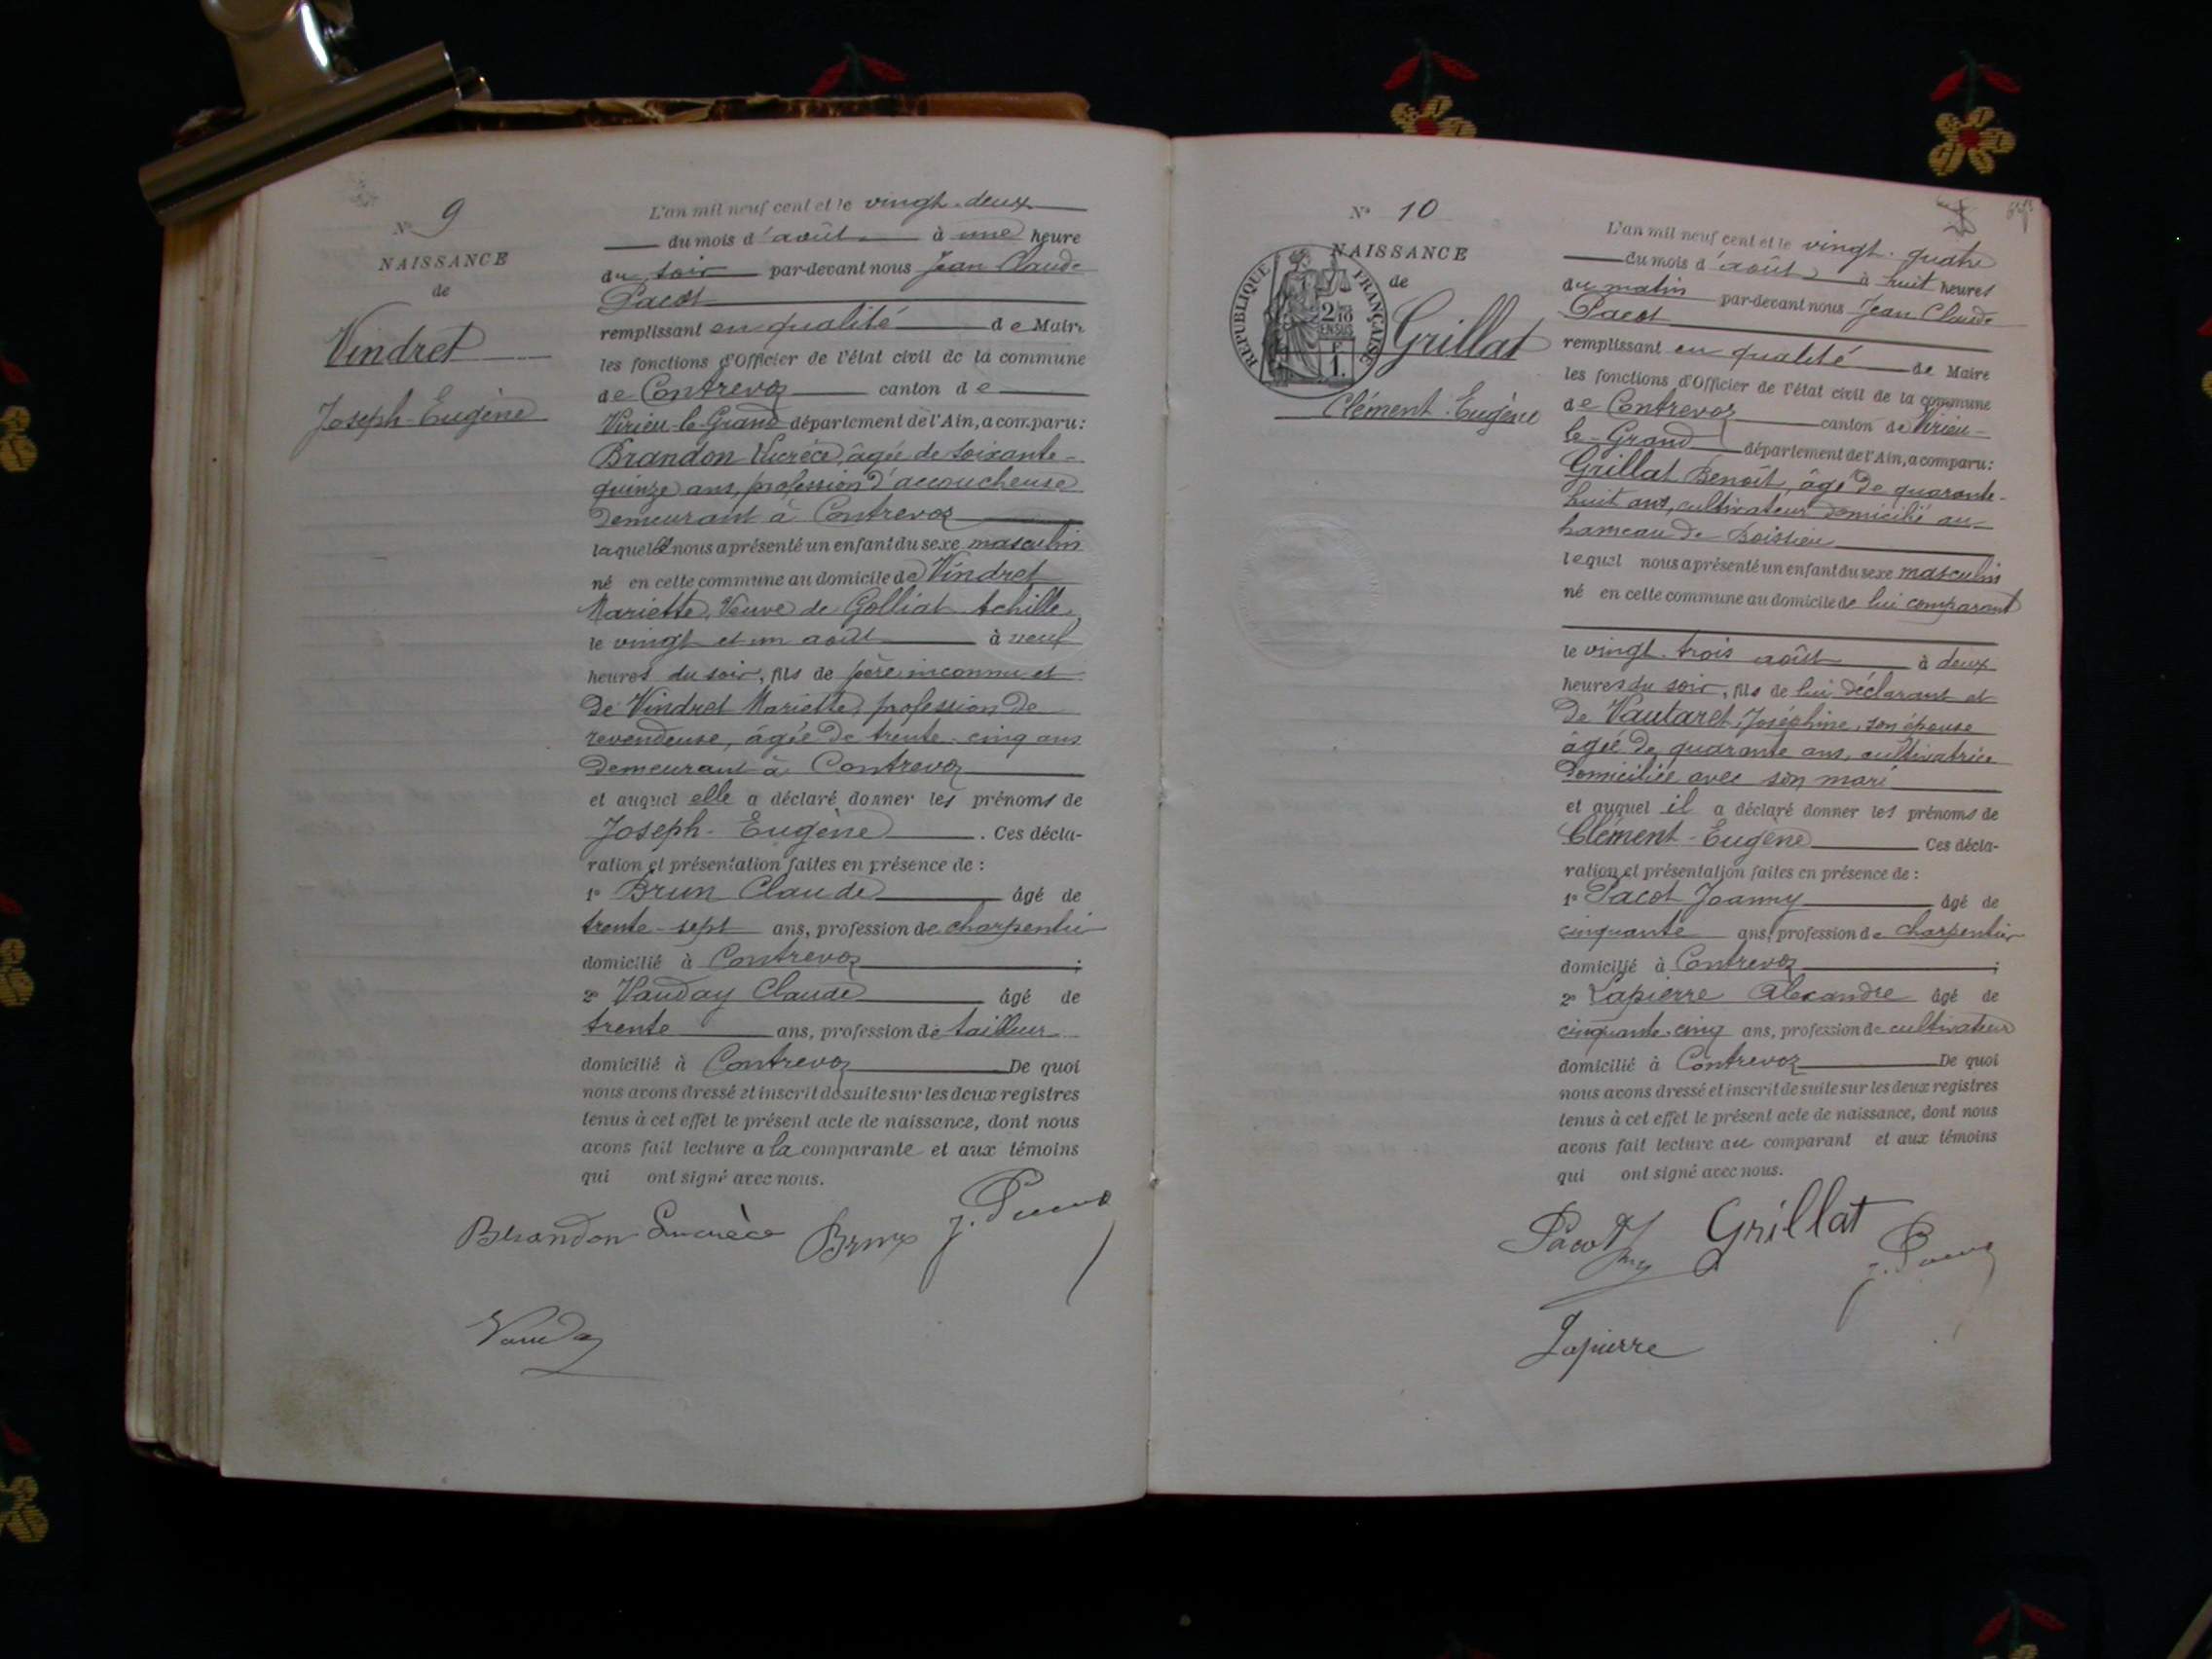 N° 9
NAISSANCE
de
Vindret
Joseph-Eugène
L'an mil neuf cent et le vingt-deux
du mois d'août à une heure
du soir par-devant nous Jean Claude
Pacot
remplissant en qualité de Maire
les fonctions d'Officier de l'état civil de la commune
de Contrevoz canton de
Virieu-le-Grand département de l'Ain, a comparu:
Brandon Lucrèce, âgée de soixante-
quinze ans, profession d'accoucheuse
demeurant à Contrevoz
laquelle nous a présenté un enfant du sexe masculin
né en cette commune au domicile de Vindret
Mariette, Veuve de Golliat Achille,
le vingt et un août à neuf
heures du soir, fils de père inconnu et
de Vindret Mariette, profession de
revendeuse, âgée de trente-cinq ans
demeurant à Contrevoz
et auquel elle a déclaré donner les prénoms de
Joseph-Eugène. Ces décla-
ration et présentation faites en présence de :
1° Brun Claude âgé de
trente-sept ans, profession de charpentier
domicilié à Contrevoz ;
2° Vauday Claude âgé de
trente ans, profession de tailleur
domicilié à Contrevoz De quoi
nous avons dressé et inscrit de suite sur les deux registres
tenus à cet effet le présent acte de naissance, dont nous
avons fait lecture a la comparante et aux témoins
qui ont signé avec nous.
Brandon Lucrèce Brun J. Pacot
Vauday
N° 10
NAISSANCE
de
Grillat
Clément-Eugène
RÉPUBLIQUE FRANÇAISE
2/10
EN SUS
1.
L'an mil neuf cent et le vingt-quatre
du mois d'août à huit heures
du matin par-devant nous Jean Claude
Pacot
remplissant en qualité de Maire
les fonctions d'Officier de l'état civil de la commune
de Contrevoz canton de Virieu-
le-Grand département de l'Ain, a comparu:
Grillat Benoît, âgé de quarante-
huit ans, cultivateur domicilié au
hameau de Boissieu
lequel nous a présenté un enfant du sexe masculin
né en cette commune au domicile de lui comparant
le vingt-trois août à deux
heures du soir, fils de lui déclarant et
de Vautaret Joséphine, son épouse
âgée de quarante ans, cultivatrice
domiciliée avec son mari
et auquel il a déclaré donner les prénoms de
Clément-Eugène Ces décla-
ration et présentation faites en présence de :
1° Pacot Joanny âgé de
cinquante ans, profession de charpentier
domicilié à Contrevoz ;
2° Lapierre Alexandre âgé de
cinquante-cinq ans, profession de cultivateur
domicilié à Contrevoz De quoi
nous avons dressé et inscrit de suite sur les deux registres
tenus à cet effet le présent acte de naissance, dont nous
avons fait lecture au comparant et aux témoins
qui ont signé avec nous.
Pacot Jny Grillat J. Pacot
Lapierre